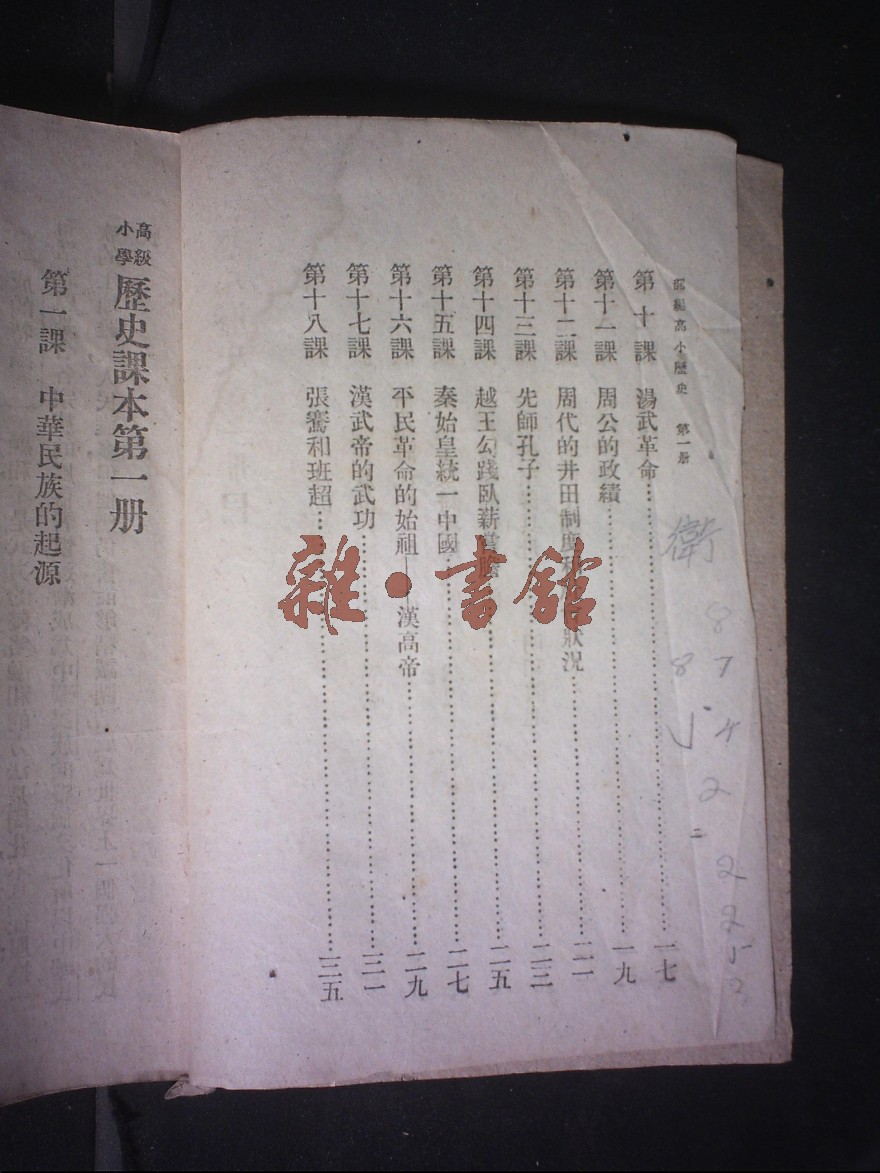 部編高小歷史 第一册
第十課 湯武革命 一七
第十一課 周公的政績 一九
第十二課 周代的井田制度和 狀況 二一
第十三課 先師孔子 二三
第十四課 越王勾踐臥薪嘗膽 二五
第十五課 秦始皇統一中國 二七
第十六課 平民革命的始祖——漢高帝 二九
第十七課 漢武帝的武功 三一
第十八課 張騫和班超 三五
二
高級小學 歷史課本第一册
第一課 中華民族的起源
雜·書館
衛